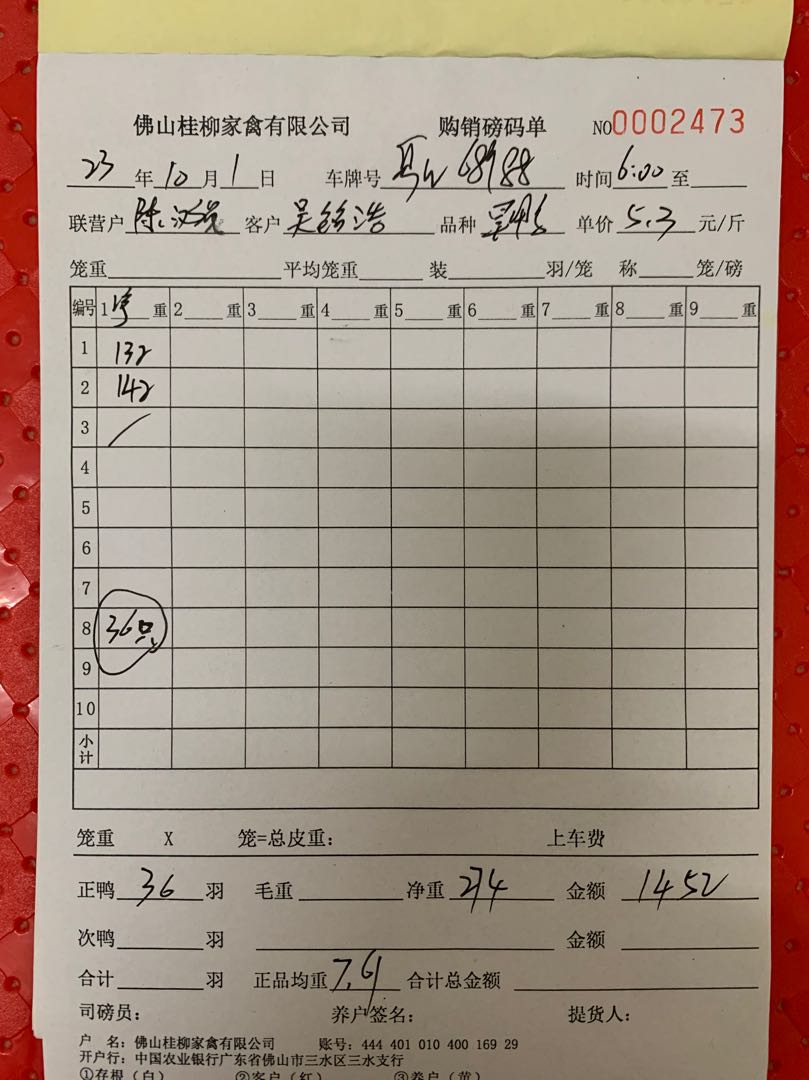 佛山桂柳家禽有限公司 购销磅码单 NO0002473
23年10月1日 车牌号 68988 时间6:00至
联营户陈 客户吴铭浩 品种 单价5.3元/斤
笼重 平均笼重 装 羽/笼 称 笼/磅
编号 1净重 2 重 3 重 4 重 5 重 6 重 7 重 8 重 9 重
1 132
2 142
3 /
4
5
6
7
8 36只
9
10
小计
笼重 X 笼=总皮重: 上车费
正鸭36羽 毛重 净重274 金额1452
次鸭 羽 金额
合计 羽 正品均重7.61 合计总金额
司磅员: 养户签名: 提货人:
户 名: 佛山桂柳家禽有限公司 账号: 444 401 010 400 169 29
开户行: 中国农业银行广东省佛山市三水区三水支行
①存根(白) ②客户(红) ③养户(黄)